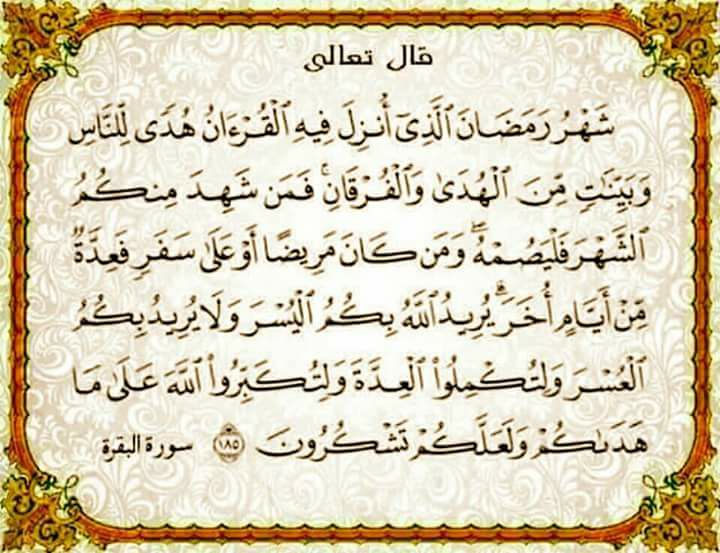 قال تعالى
شَهْرُ رَمَضَانَ ٱلَّذِىٓ أُنزِلَ فِيهِ ٱلْقُرْءَانُ هُدًى لِّلنَّاسِ
وَبَيِّنَٰتٍ مِّنَ ٱلْهُدَىٰ وَٱلْفُرْقَانِ ۚ فَمَن شَهِدَ مِنكُمُ
ٱلشَّهْرَ فَلْيَصُمْهُ ۖ وَمَن كَانَ مَرِيضًا أَوْ عَلَىٰ سَفَرٍ فَعِدَّةٌ
مِّنْ أَيَّامٍ أُخَرَ ۗ يُرِيدُ ٱللَّهُ بِكُمُ ٱلْيُسْرَ وَلَا يُرِيدُ بِكُمُ
ٱلْعُسْرَ وَلِتُكْمِلُوا۟ ٱلْعِدَّةَ وَلِتُكَبِّرُوا۟ ٱللَّهَ عَلَىٰ مَا
هَدَىٰكُمْ وَلَعَلَّكُمْ تَشْكُرُونَ ١٨٥ سورة البقرة